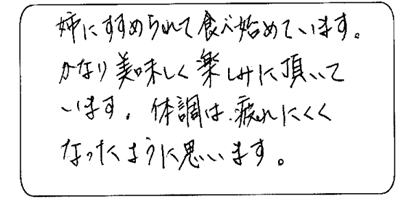 姉にすすめられて食べ始めています。
かなり美味しく楽しみに頂いて
います。体調は、疲れにくく
なったように思います。